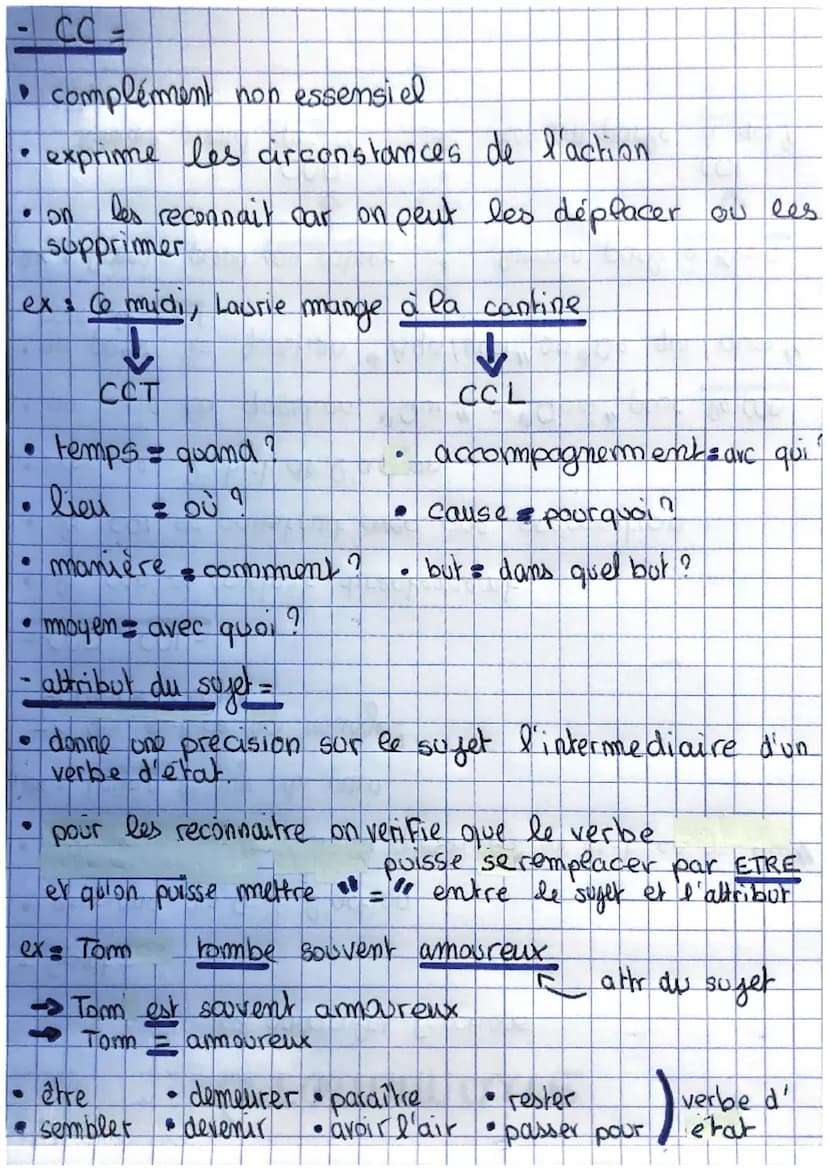 - CC =
• complément non essensiel
• exprime les circonstances de l'action
• on les reconnait car on peut les déplacer ou les
supprimer
ex : Ce midi, Laurie mange à la cantine
CCT CCL
• temps = quand ? • accompagnement = avc qui ?
• lieu = où ? • cause = pourquoi ?
• manière = comment ? • but = dans quel but ?
• moyen = avec quoi ?
- attribut du sujet =
• donne une précision sur le sujet l'intermediaire d'un
verbe d'état.
• pour les reconnaitre on verifie que le verbe
puisse se remplacer par ETRE
et qu'on puisse mettre " = " entre le sujet et l'attribut
ex = Tom tombe souvent amoureux
attr du sujet
→ Tom est souvent amoureux
→ Tom = amoureux
• être • demeurer • paraître • rester ) verbe d'
• sembler • devenir • avoir l'air • passer pour ) état